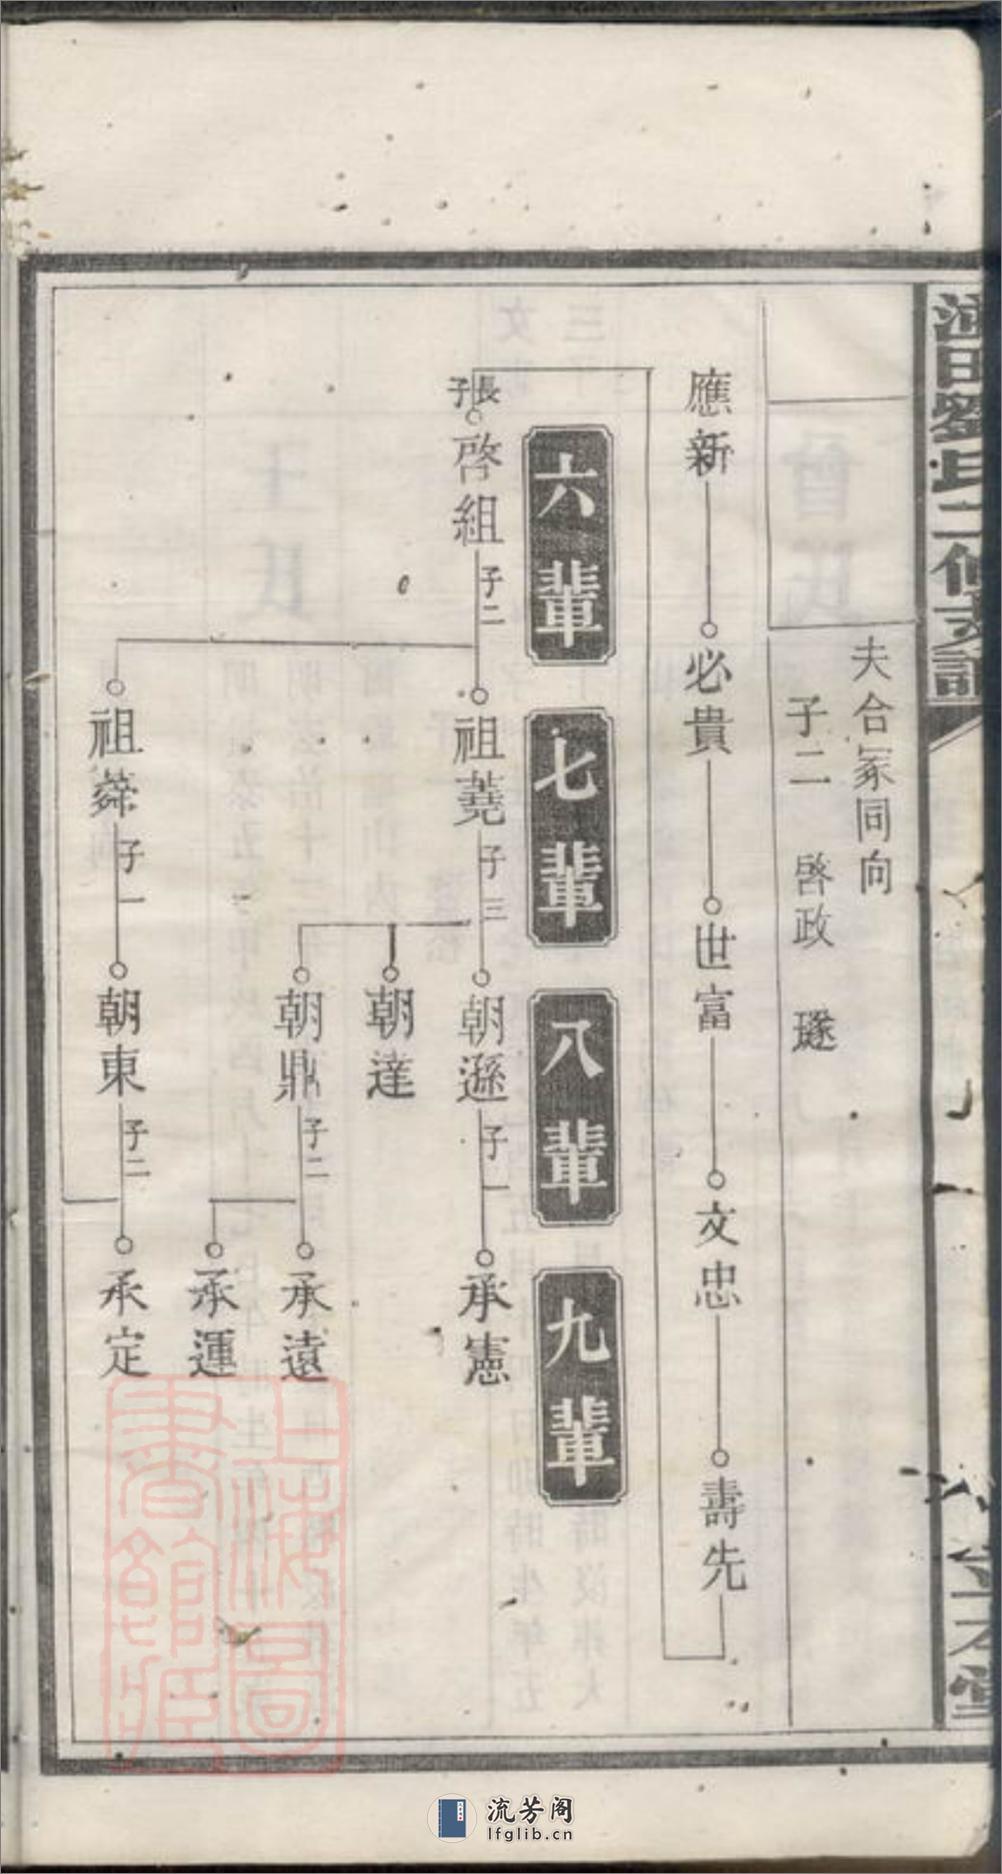 劉氏二修支譜
夫合冢同向
子二 啓政 璲
應新 必貴 世富 文忠 壽先
六輩 七輩 八輩 九輩
長子
啓組 子二 祖蕘 子三 朝遜 子一 承憲
朝達
朝鼎 子二 承遠
承運
祖蕣 子一 朝東 子二 承定
上海圖
書館藏
流芳阁
lfglib.cn